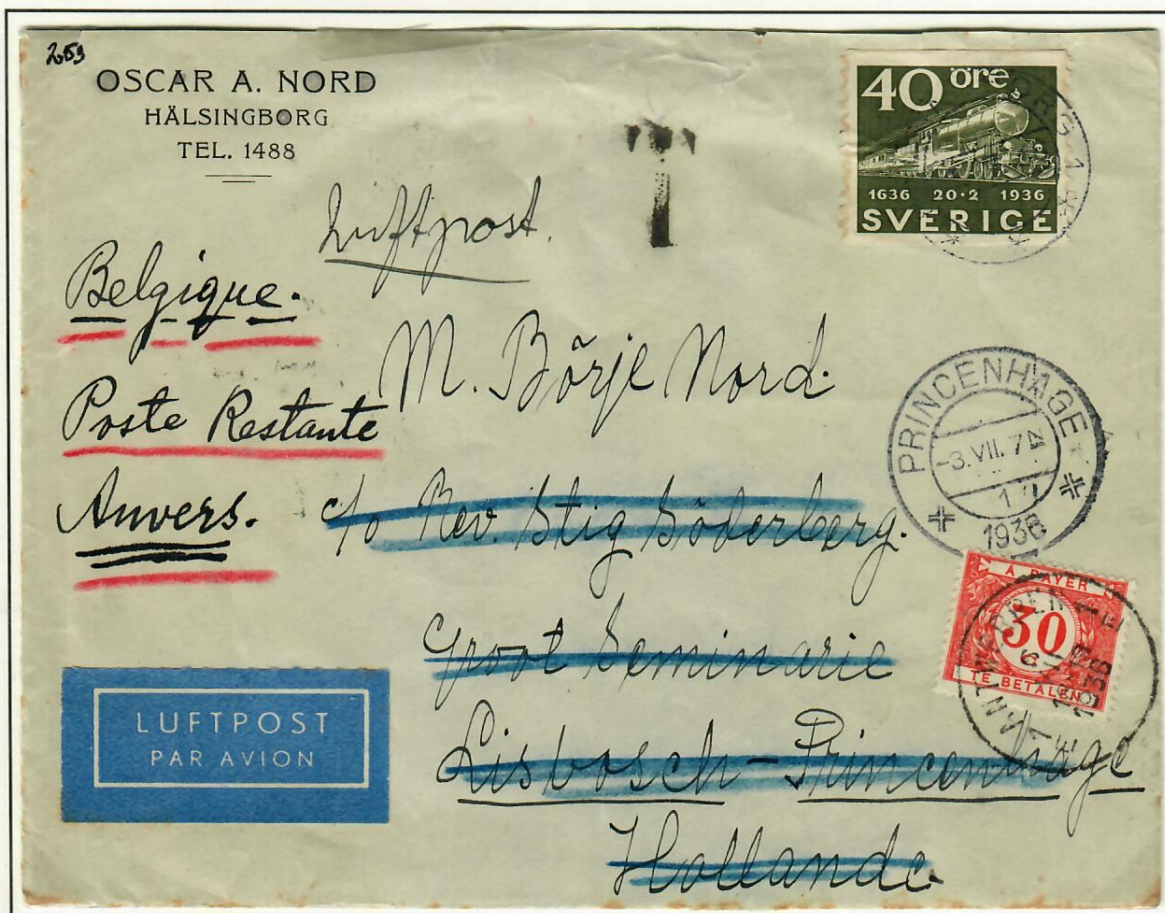 259
OSCAR A. NORD
HÄLSINGBORG
TEL. 1488
40 öre
1636 20·2 1936
SVERIGE
T
Luftpost.
Belgique.
Poste Restante
Anvers.
M. Börje Nord.
c/o Rev. Stig Söderberg.
Groot Seminarie
Lisbosch - Princenhage
Hollande.
PRINCENHAGE
-3.VII.
1936
A PAYER
30
TE BETALEN
ANTWERPEN
LUFTPOST
PAR AVION